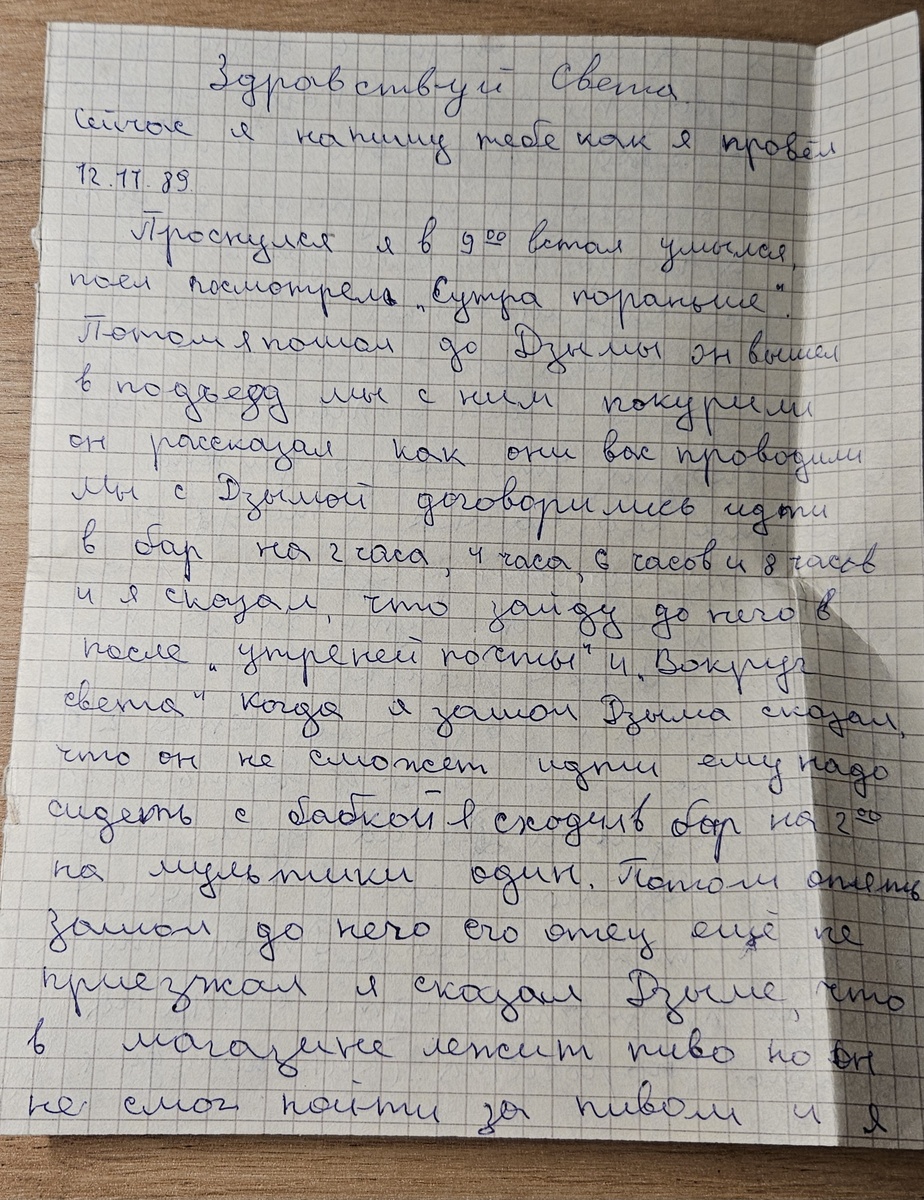 Здравствуй Света.
Сейчас я напишу тебе как я провёл
12.11.89
Проснулся я в 9⁰⁰ встал умылся,
поел посмотрел „Сутра пораньше".
Потом я пошол до Дзымы он вышел
в подъезд мы с ним покурили
он рассказал как они вас проводили
Мы с Дзымой договорились идти
в бар на 2 часа, 4 часа, 6 часов и 8 часов
и я сказал, что зайду до него в
после „утреней почты" и „Вокруг
света" Когда я зашол Дзыма сказал,
что он не сможет идти ему надо
сидеть с бабкой я сходил в бар на 2⁰⁰
на мультики один. Потом опять
Зашол до него его отец ещё не
приезжал я сказал Дзыме, что
в магазине лежит пиво но он
не смог пойти за пивом и я